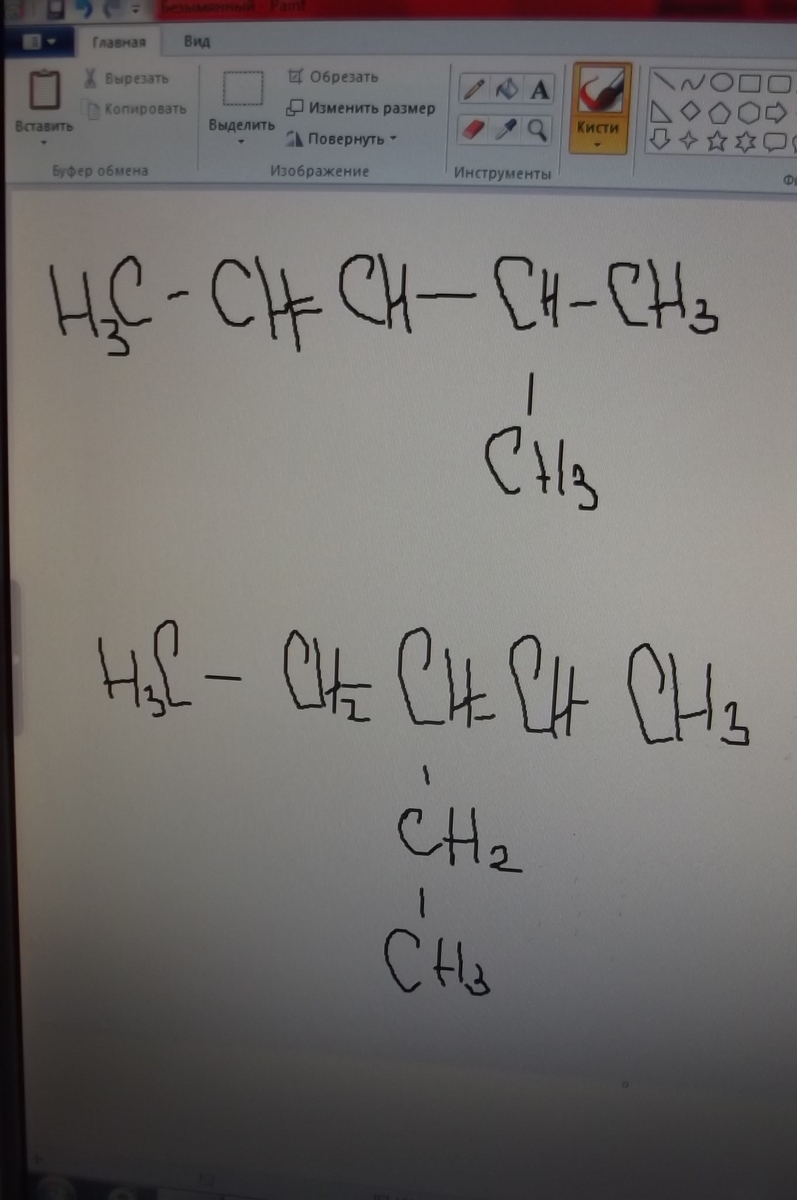 Безымянный - Paint
Главная Вид
Вставить
Вырезать
Копировать
Буфер обмена
Выделить
Обрезать
Изменить размер
Повернуть
Изображение
A
Инструменты
Кисти
H3C - CH = CH — CH - CH3
CH3
H3C — CH2 - CH - CH CH3
CH2
CH3